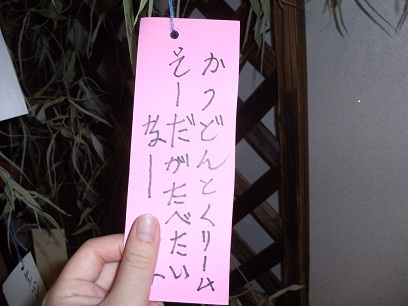 かつどんとくりーム
そーだがたべたい
なー